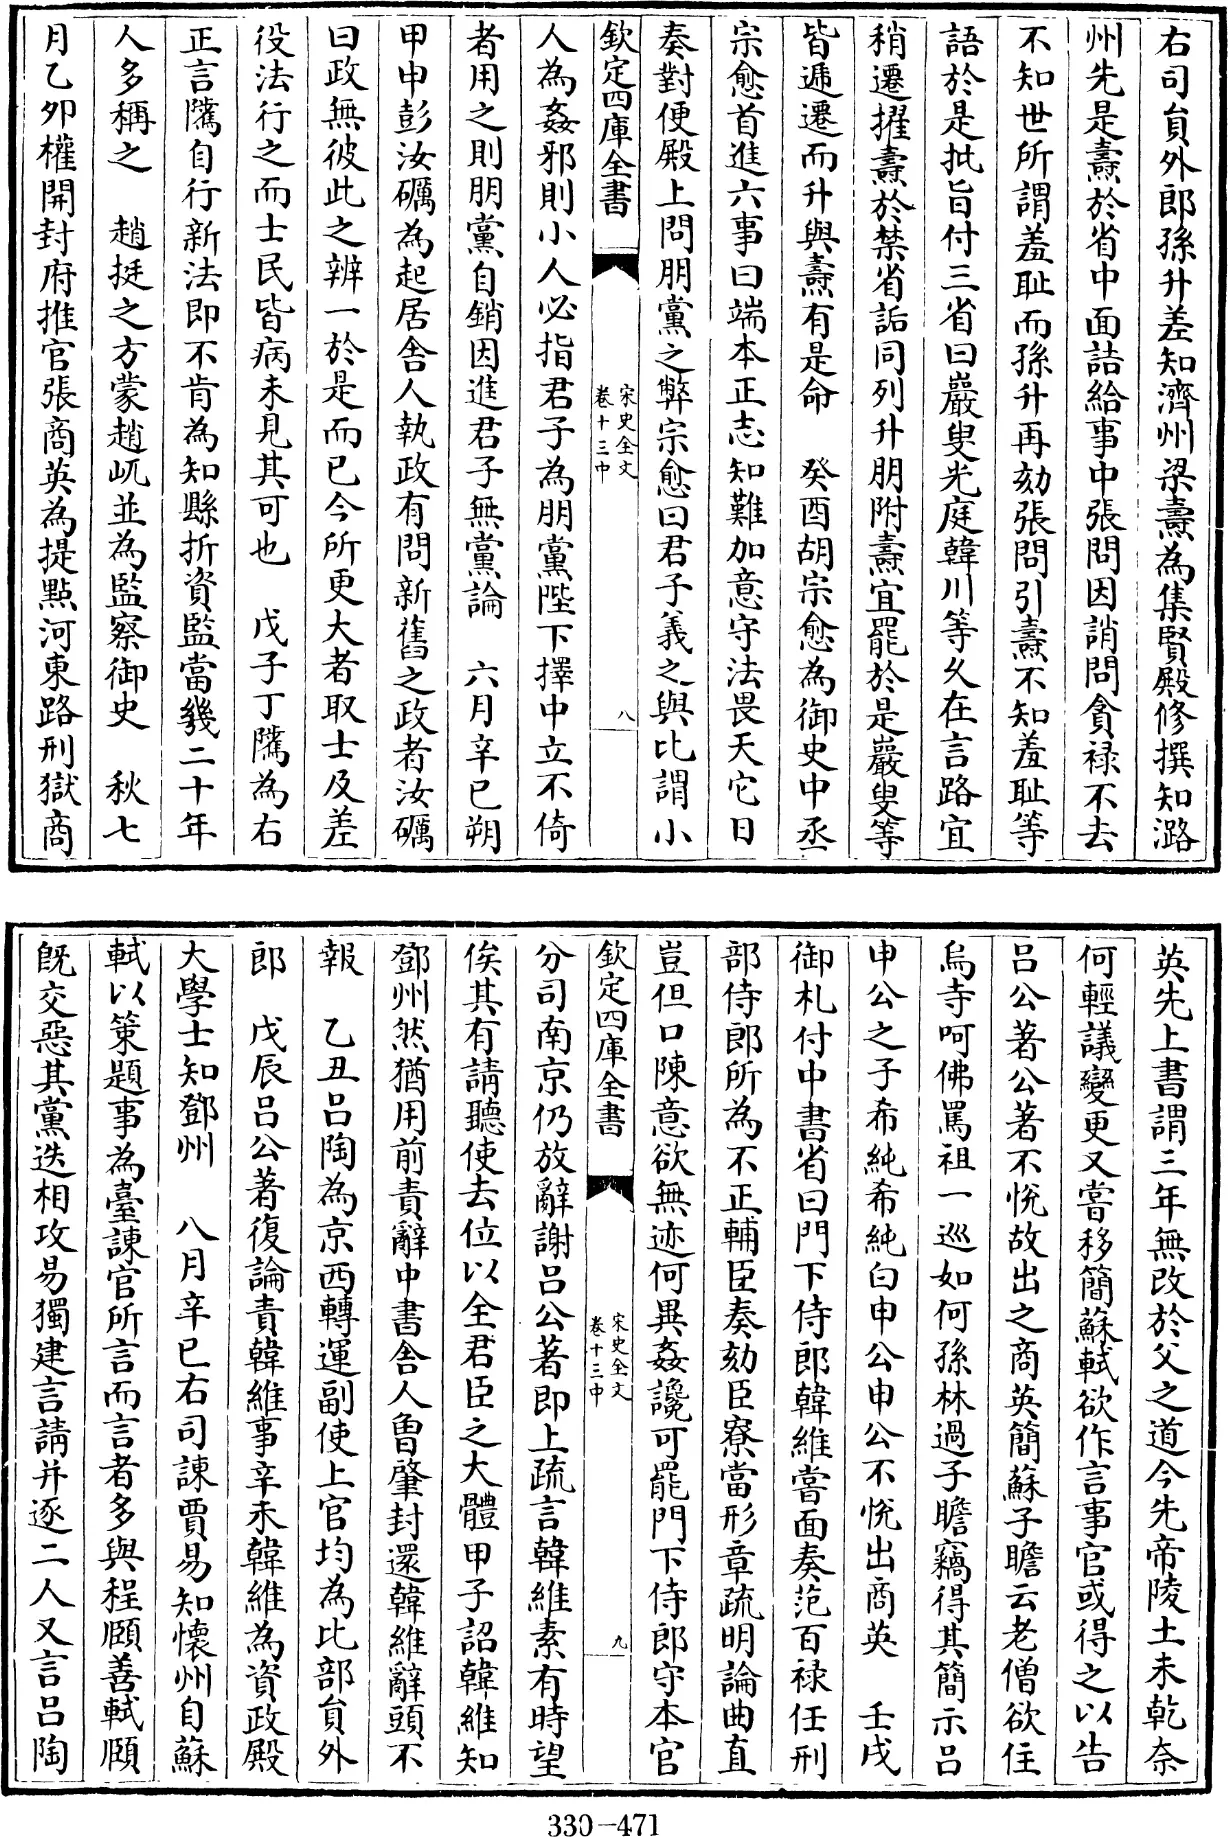 右司員外郎孫升差知濟州梁燾為集賢殿修撰知潞
州先是燾於省中面詰給事中張問因誚問貪禄不去
不知世所謂羞耻而孫升再劾張問引燾不知羞耻等
語於是批旨付三省曰巖叟光庭韓川等久在言路宜
稍遷擢燾於禁省詬同列升朋附燾宜罷於是巖叟等
皆遞遷而升與燾有是命　癸酉胡宗愈為御史中丞
宗愈首進六事曰端本正志知難加意守法畏天它日
奏對便殿上問朋黨之弊宗愈曰君子義之與比謂小
欽定四庫全書
宋史全文
卷十三中
八
人為姦邪則小人必指君子為朋黨陛下擇中立不倚
者用之則朋黨自銷因進君子無黨論　六月辛巳朔
甲申彭汝礪為起居舍人執政有問新舊之政者汝礪
曰政無彼此之辨一於是而已今所更大者取士及差
役法行之而士民皆病未見其可也　戊子丁隲為右
正言隲自行新法即不肯為知縣折資監當幾二十年
人多稱之　趙挺之方蒙趙屼並為監察御史　秋七
月乙卯權開封府推官張商英為提點河東路刑獄商
英先上書謂三年無改於父之道今先帝陵土未乾奈
何輕議變更又嘗移簡蘇軾欲作言事官或得之以告
吕公著公著不悅故出之商英簡蘇子瞻云老僧欲住
烏寺呵佛罵祖一巡如何孫林過子瞻竊得其簡示吕
申公之子希純希純白申公申公不悅出商英　壬戌
御札付中書省曰門下侍郎韓維嘗面奏范百禄任刑
部侍郎所為不正輔臣奏劾臣寮當形章疏明論曲直
豈但口陳意欲無迹何異姦讒可罷門下侍郎守本官
欽定四庫全書
宋史全文
卷十三中
九
分司南京仍放辭謝吕公著即上疏言韓維素有時望
俟其有請聽使去位以全君臣之大體甲子詔韓維知
鄧州然猶用前責辭中書舍人曾肇封還韓維辭頭不
報　乙丑吕陶為京西轉運副使上官均為比部員外
郎　戊辰吕公著復論責韓維事辛未韓維為資政殿
大學士知鄧州　八月辛巳右司諫賈易知懷州自蘇
軾以策題事為臺諫官所言而言者多與程頤善軾頤
既交惡其黨迭相攻易獨建言請并逐二人又言吕陶
330-471